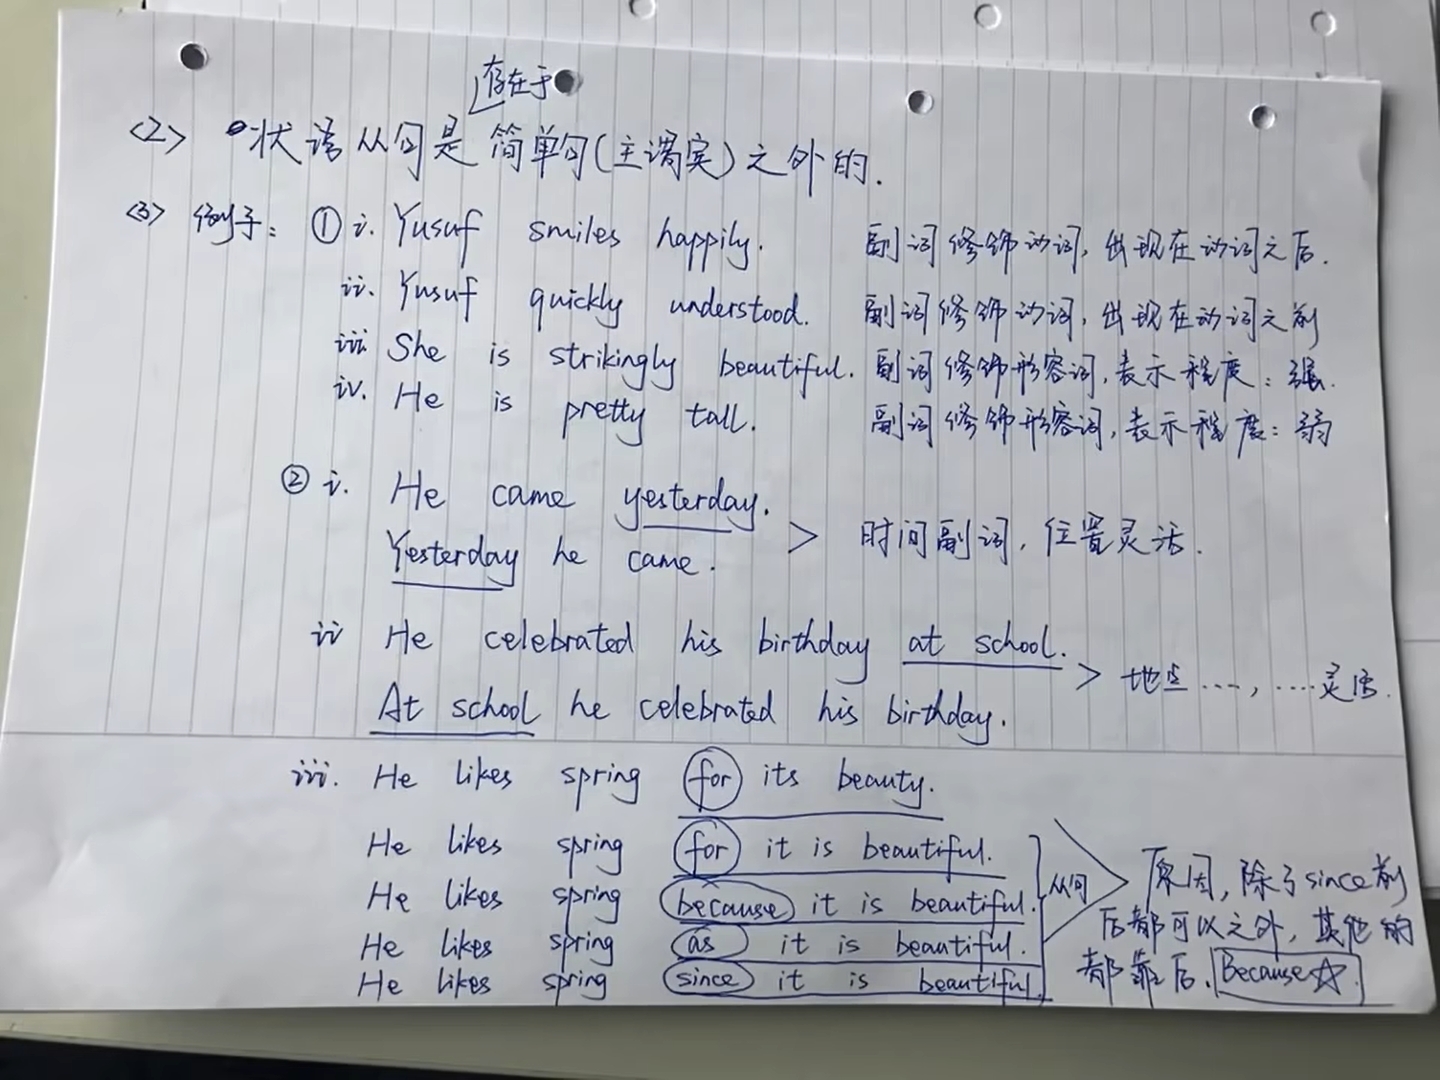 存在于
<2> 状语从句是简单句(主谓宾)之外的.
<3> 例子: ① i. Yusuf smiles happily. 副词修饰动词, 出现在动词之后.
ii. Yusuf quickly understood. 副词修饰动词, 出现在动词之前
iii She is strikingly beautiful. 副词修饰形容词, 表示程度: 强.
iv. He is pretty tall. 副词修饰形容词, 表示程度: 弱
② i. He came yesterday.
Yesterday he came. > 时间副词, 位置灵活.
ii He celebrated his birthday at school.
At school he celebrated his birthday. > 地点 ...., .... 灵活.
iii. He likes spring for its beauty.
He likes spring for it is beautiful.
He likes spring because it is beautiful.
He likes spring as it is beautiful.
He likes spring since it is beautiful.
从句
原因, 除了since前
后都可以之外, 其他的
都靠后. Because☆